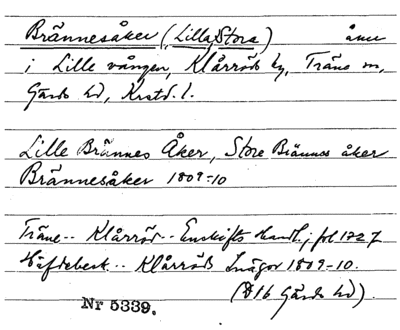 Brännesåker (Lilla, Stora) åker
i Lille vången, Klårröds by, Träne sn,
Gärds hd, Kristd. l.
Lille Brännes Åker, Store Brännes åker
Brännesåker 1809-10
Träne.. Klårröd.. Enskifts Handl.; fol 172 7
Häfdebesk... Klårröds Inägor 1809-10.
(B16 Gärds hd).
Nr 5339.